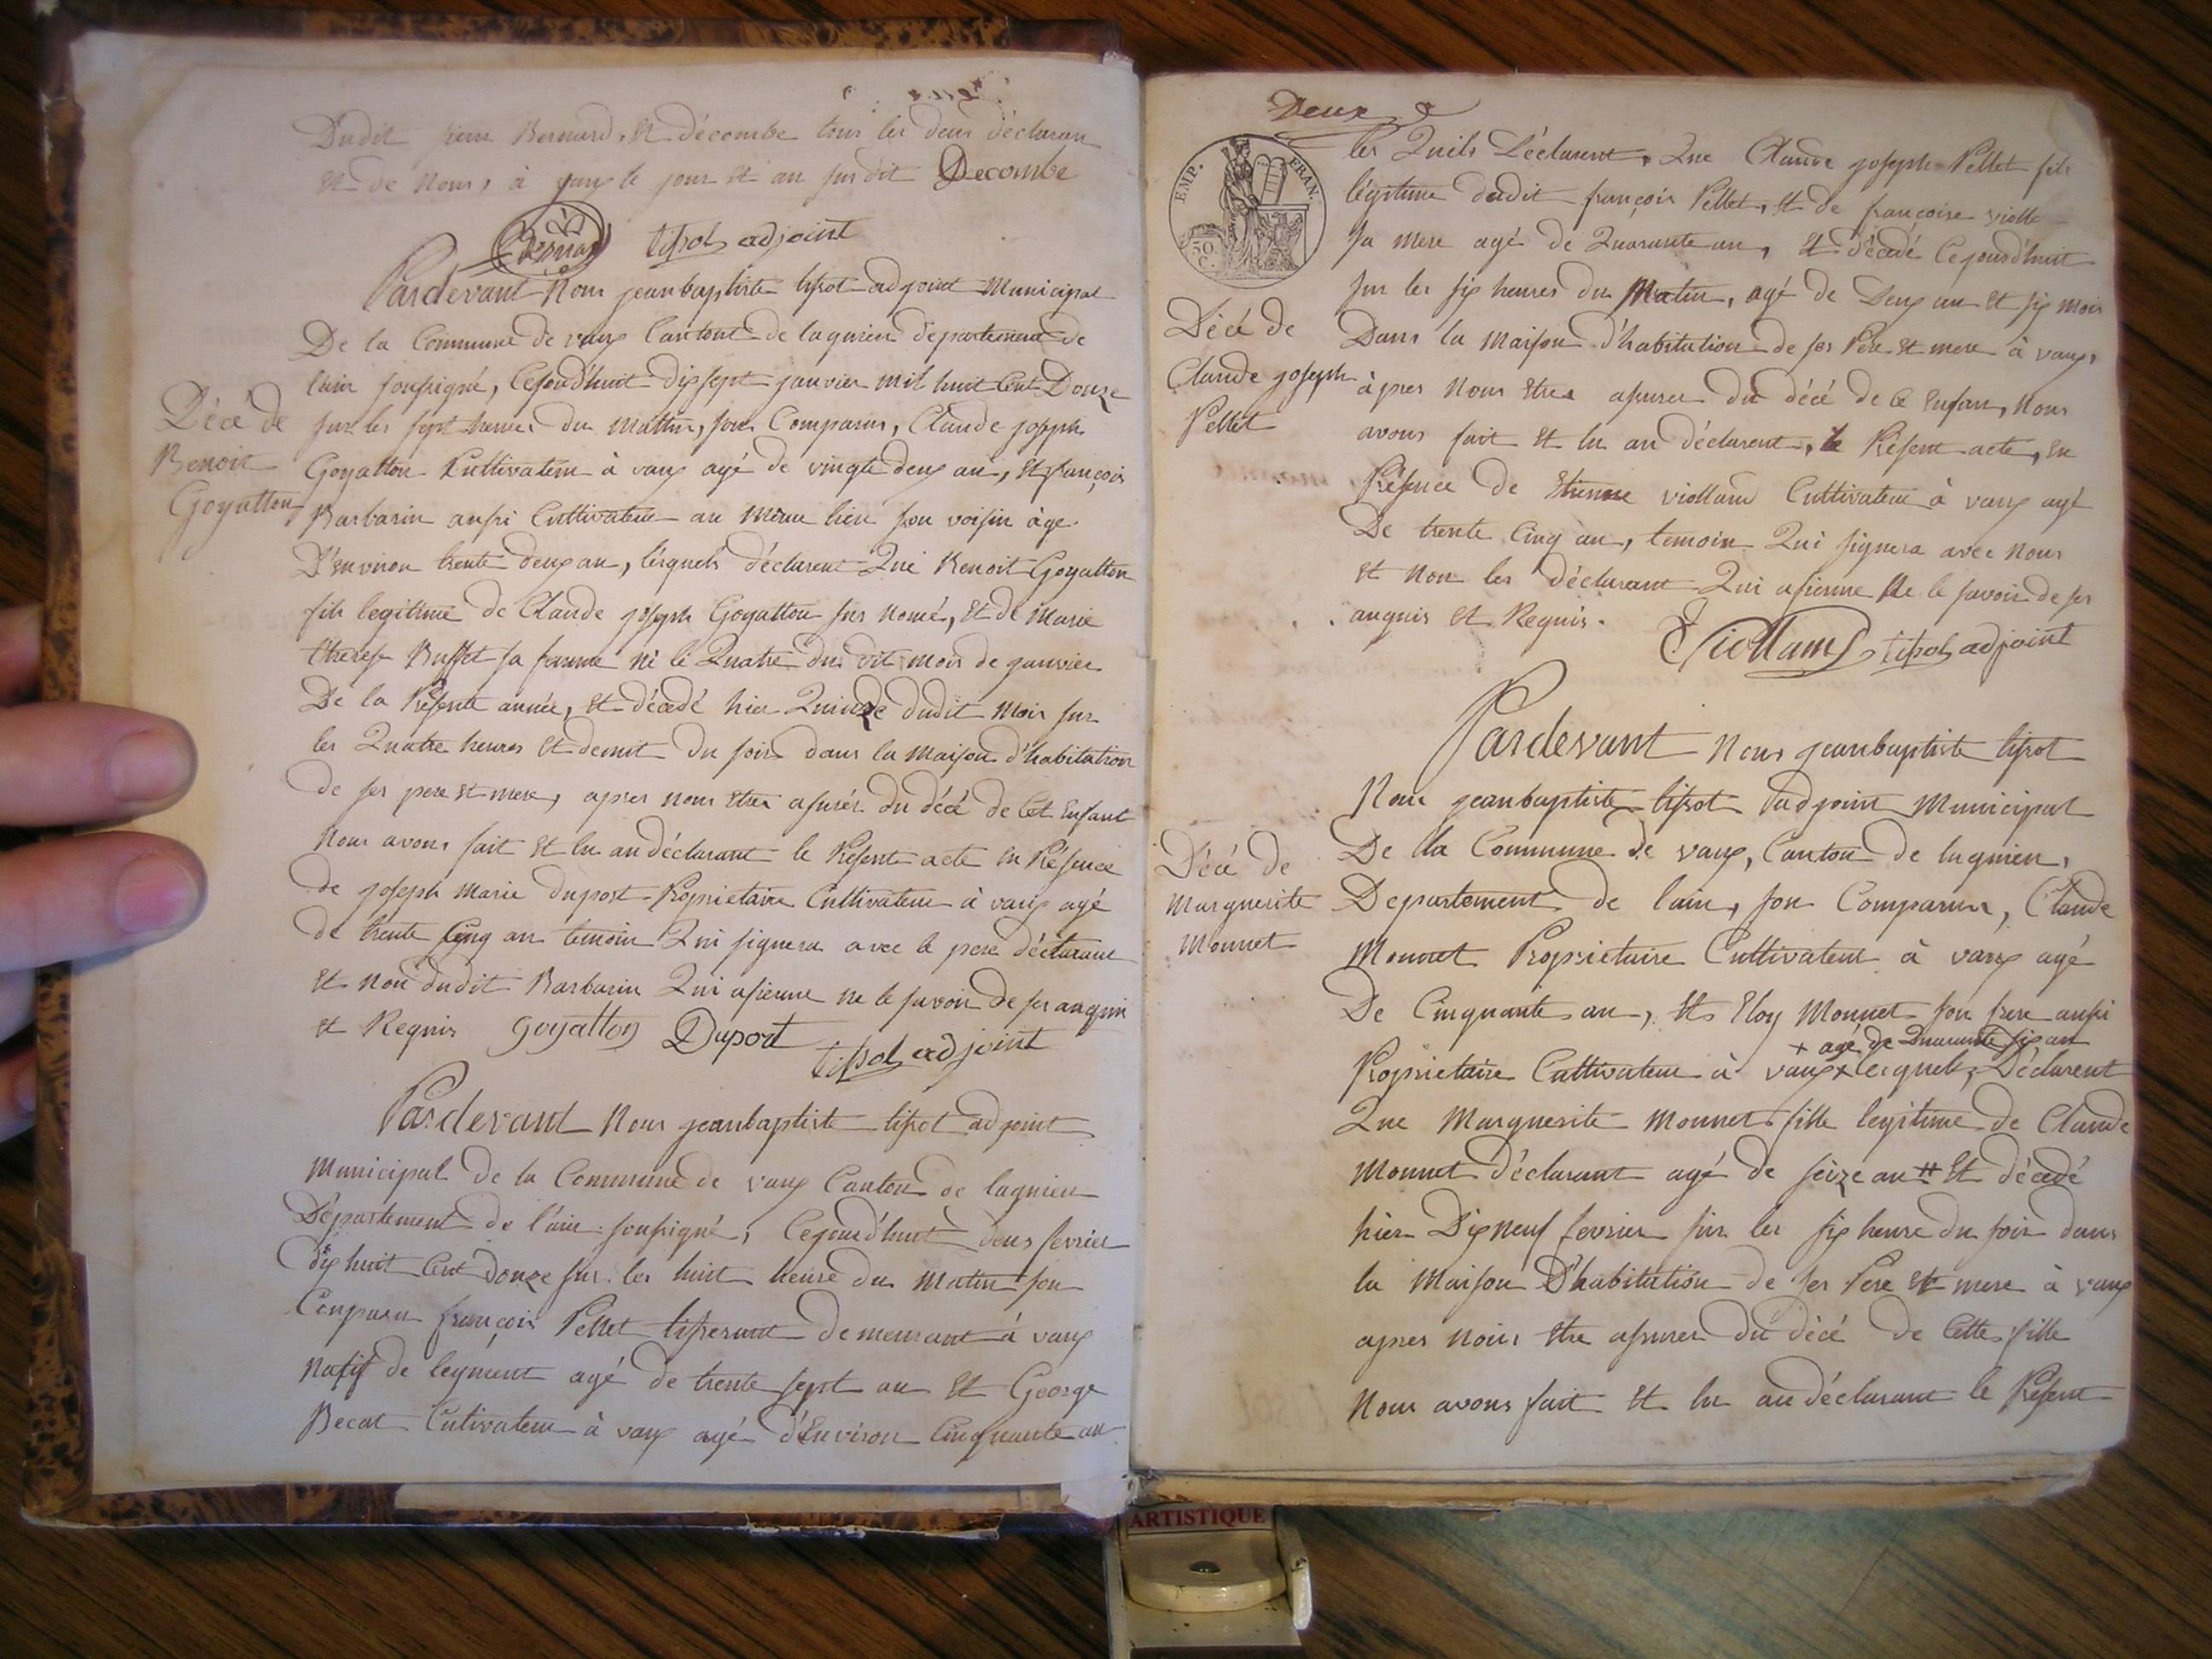 Dudit pierre Bernard, Et décombe tous les deux déclaran
Et de Nous, à vaux le jour Et an susdit Decombe
Bernard tissot adjoint
Pardevant Nous jeanbaptiste tissot adjoint Municipal
De la Commune de vaux Cantont de lagnieu département de
lain soussigné, Cejourd'huit dix sept janvier mil huit Cent Douze
sur les sept heures du mattin, sont Comparus, Claude joseph
Goyatton Cultivateur à vaux agé de vingte deux an, Et françois
Barbarin aussi Cultivateur au Même lieu son voisin àge
D'environ trente deux an, lesquels déclarent Que Benoit Goyatton
fils legitime de Claude joseph Goyatton sus nomé, Et de Marie
therese Buffet sa femme né le Quatre du dit mois de janvier
De la Présente année, Et décédé hier Quinze dudit Mois sur
les Quatre heures Et demit du soir dans la Maison d'habitation
de ses pere Et mere, apres nous Etre assurés du décé de Cet Enfant
Nous avons fait Et lu au déclarant le Présent acte En Présence
de joseph Marie duport Propriétaire Cultivateur à vaux agé
de trente Cinq an temoin Qui signera avec le pere déclarant
Et non dudit Barbarin Qui assienne ne le savoir de se anquis
Et Requis Goyatton Duport
tissot adjoint
Décé de
Benoit
Goyatton
Pardevant Nous jeanbaptiste tissot adjoint
Municipal de la Commune de vaux Canton de lagnieu
Département de l'ain soussigné, Cejourd'huit deux fevrier
dix huit Cent douze sur les huit heure du matin son
Comparu françois Pellet tisserant demeurant à vaux
natif de leyment agé de trente sept an Et George
Becat Cultivateur à vaux agé d'Environ Cinquante an
Deux
EMP. FRAN.
50 C.
les Quels Déclarent, Que Claude joseph Pellet fils
légitime dudit françois Pellet, Et de françoise viollet
sa mere agé de Quarante an, Et décédé Cejourd'huit
sur les six heures du Matin, agé de Deux an Et six mois
Dans la Maison d'habitation de ses Pere Et mere à vaux,
àpres Nous Etres assurer du décé de Ce Enfan, Nous
avons fait Et lu au déclarent, le Présent acte, En
Présence de Etienne violland Cultivateur à vaux agé
De trente Cinq an, temoin Qui signera avec Nous
Et Non les déclarant Qui assienne Ne le savoir de ses
anquis Et Requis.
Violland tissot adjoint
Décé de
Claude joseph
Pellet
Pardevant Nous jeanbaptiste tissot
Nous jeanbaptiste tissot adjoint Municipal
De la Commune de vaux, Canton de lagnieu,
Departement de lain, son Comparus, Claude
Monnet Propriétaire Cultivateur à vaux agé
De Cinquante an, Et Eloy Monnet son frere aussi
+ agé de Quarante six an
Propriétaire Cultivateur à vaux + lesquels, Déclarent
Que Marguerite Monnet fille legitime de Claude
Monnet déclarant agé de seize an Et décédé
hier Dix neuf fevrier sur les six heure du soir dans
la Maison D'habitation de ses Pere Et mere à vaux
apres Nous Etre assurer du décé de Cette fille
Nous avons fait Et lu au déclarant le Présent
Décé de
Marguerite
Monnet
ARTISTIQUE